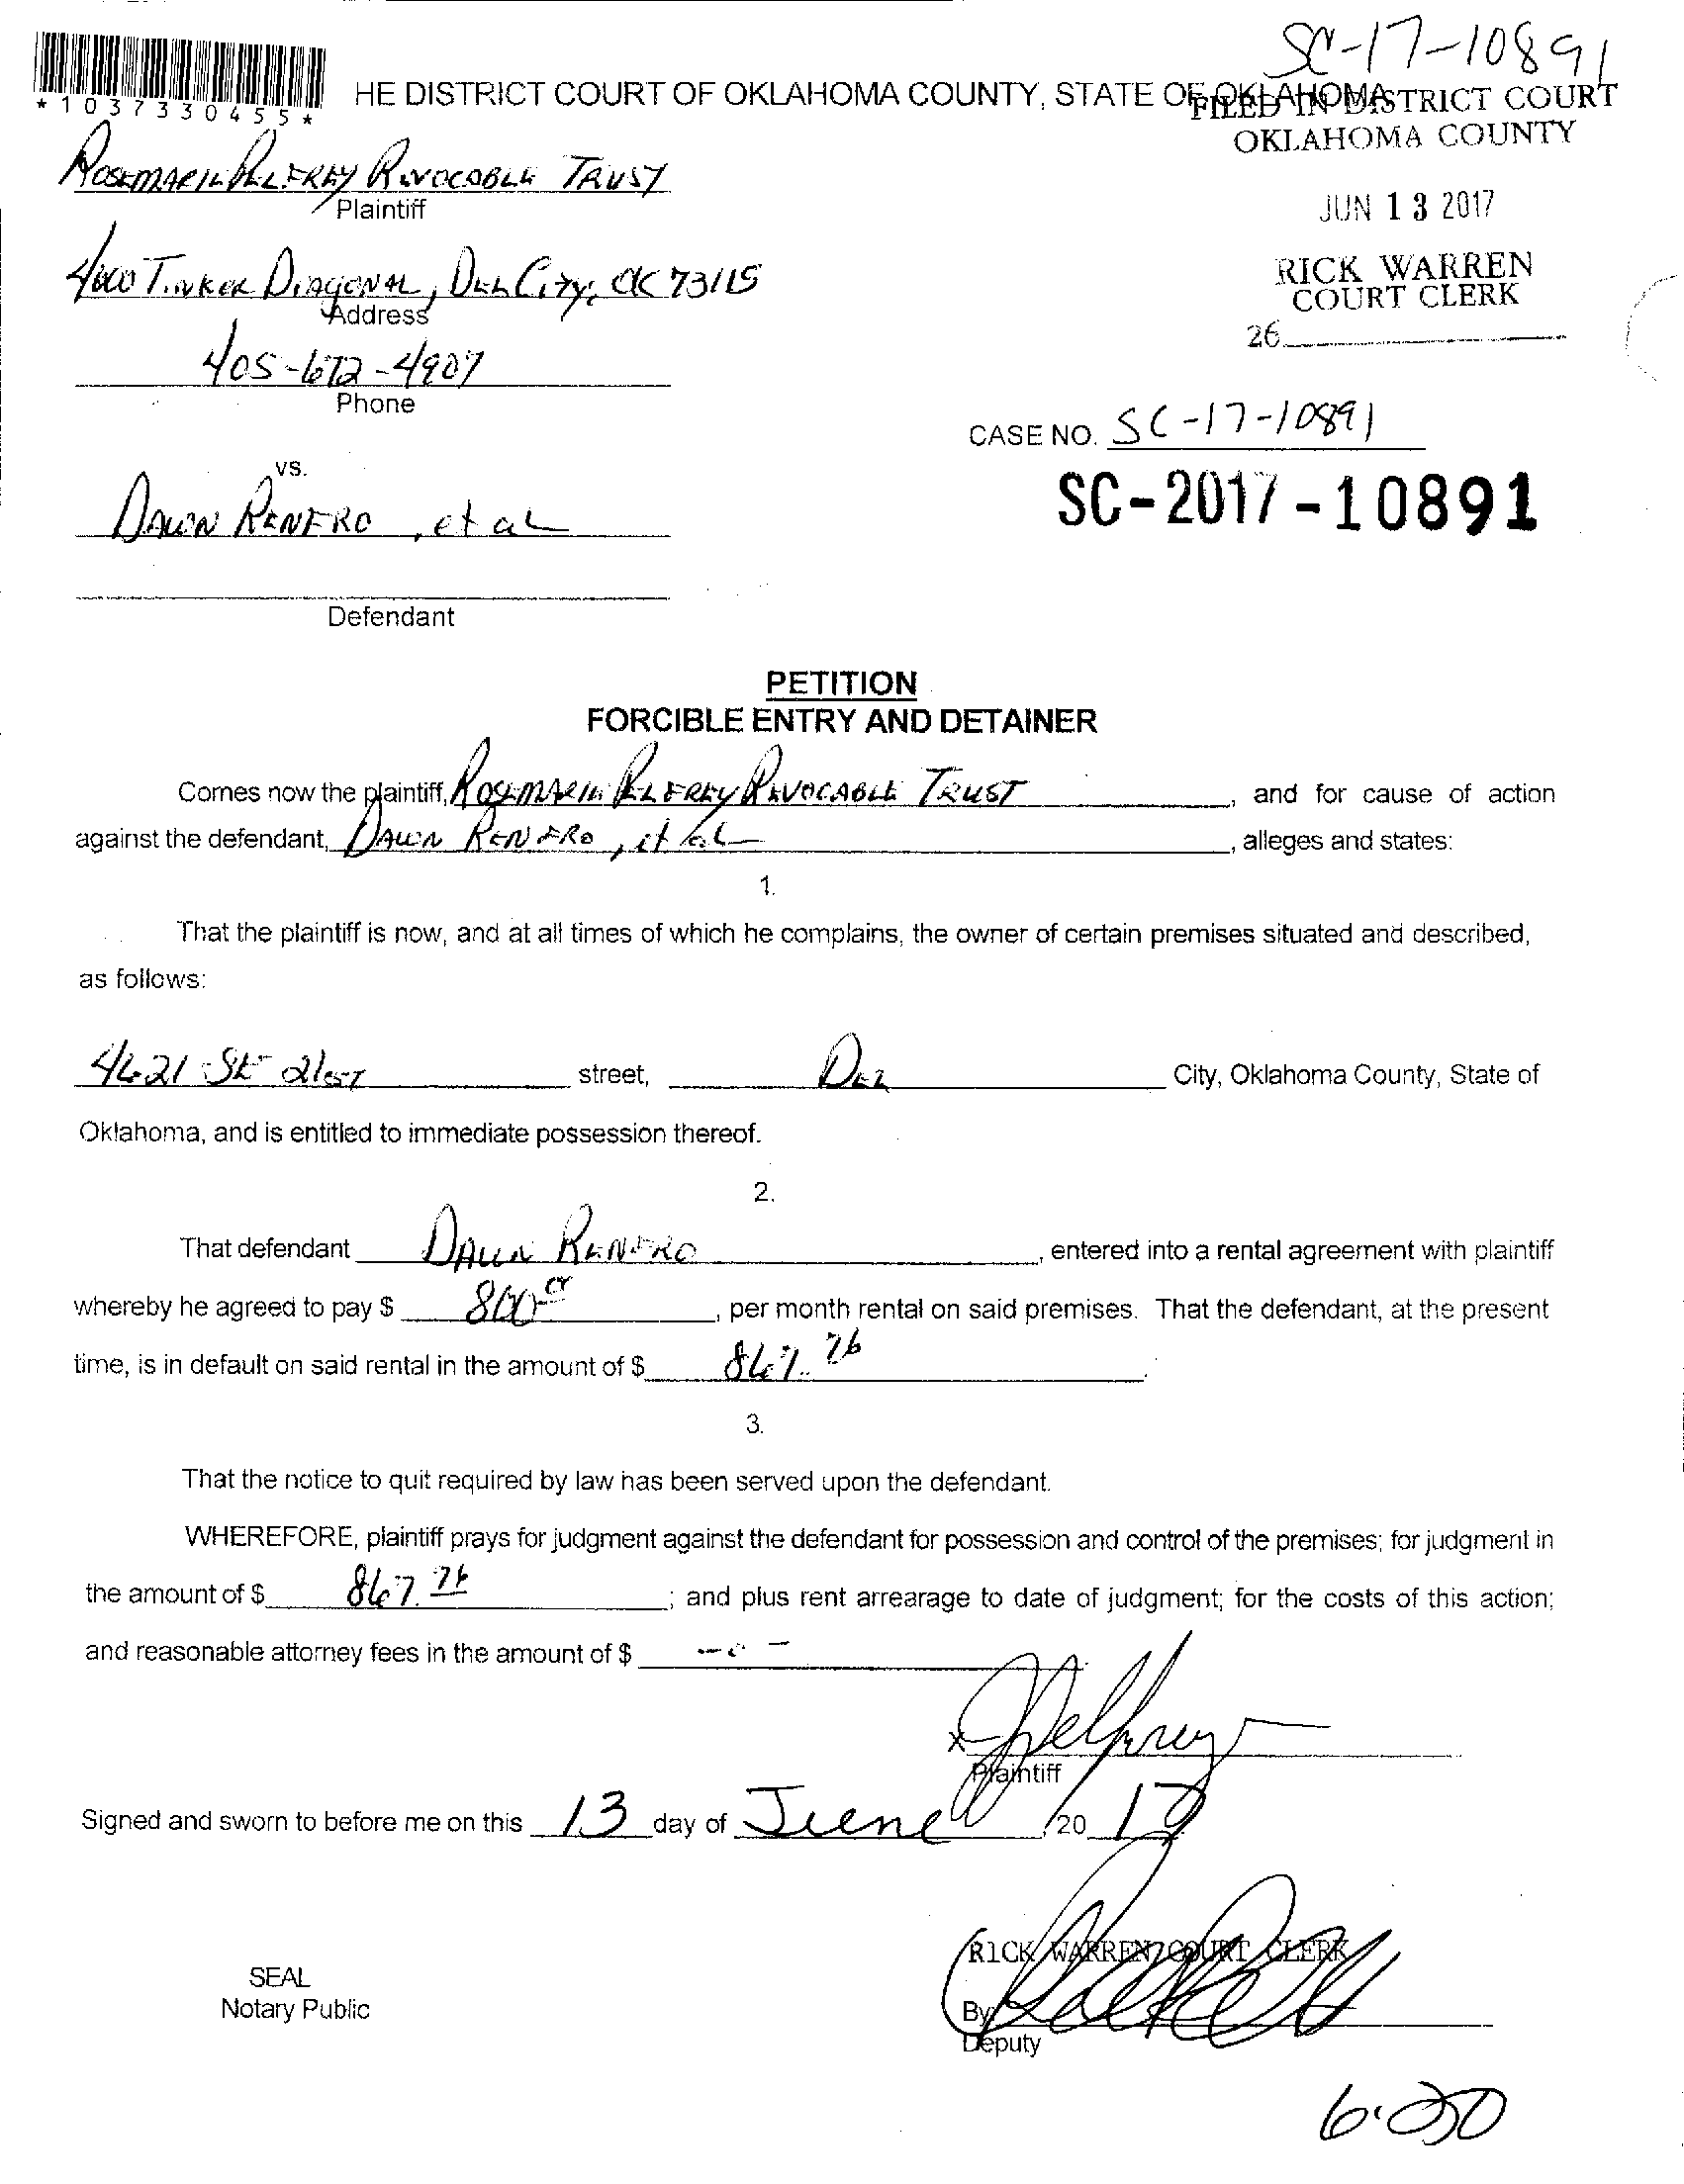 SC-17-10891
*1037330455*
HE DISTRICT COURT OF OKLAHOMA COUNTY, STATE OF OKLAHOMA
FILED IN DISTRICT COURT
OKLAHOMA COUNTY
ROSEMARIE PELFREY REVOCABLE TRUST
Plaintiff
JUN 13 2017
RICK WARREN
COURT CLERK
26
4600 TINKER DIAGONAL, DEL CITY, OK 73115
Address
405-672-4907
Phone
CASE NO. SC-17-10891
SC-2017-10891
vs.
DAWN RENFRO, et al
Defendant
PETITION
FORCIBLE ENTRY AND DETAINER
Comes now the plaintiff, ROSEMARIE PELFREY REVOCABLE TRUST, and for cause of action
against the defendant, DAWN RENFRO, et al, alleges and states:
1.
That the plaintiff is now, and at all times of which he complains, the owner of certain premises situated and described,
as follows:
4621 SE 21ST street, DEL City, Oklahoma County, State of
Oklahoma, and is entitled to immediate possession thereof.
2.
That defendant DAWN RENFRO, entered into a rental agreement with plaintiff
whereby he agreed to pay $ 800, per month rental on said premises. That the defendant, at the present
time, is in default on said rental in the amount of $ 867.76.
3.
That the notice to quit required by law has been served upon the defendant.
WHEREFORE, plaintiff prays for judgment against the defendant for possession and control of the premises; for judgment in
the amount of $ 867.76; and plus rent arrearage to date of judgment; for the costs of this action;
and reasonable attorney fees in the amount of $ -0-
X JPelfrey
Plaintiff
Signed and sworn to before me on this 13 day of June, 2017
RICK WARREN, COURT CLERK
SEAL
Notary Public
By
Deputy